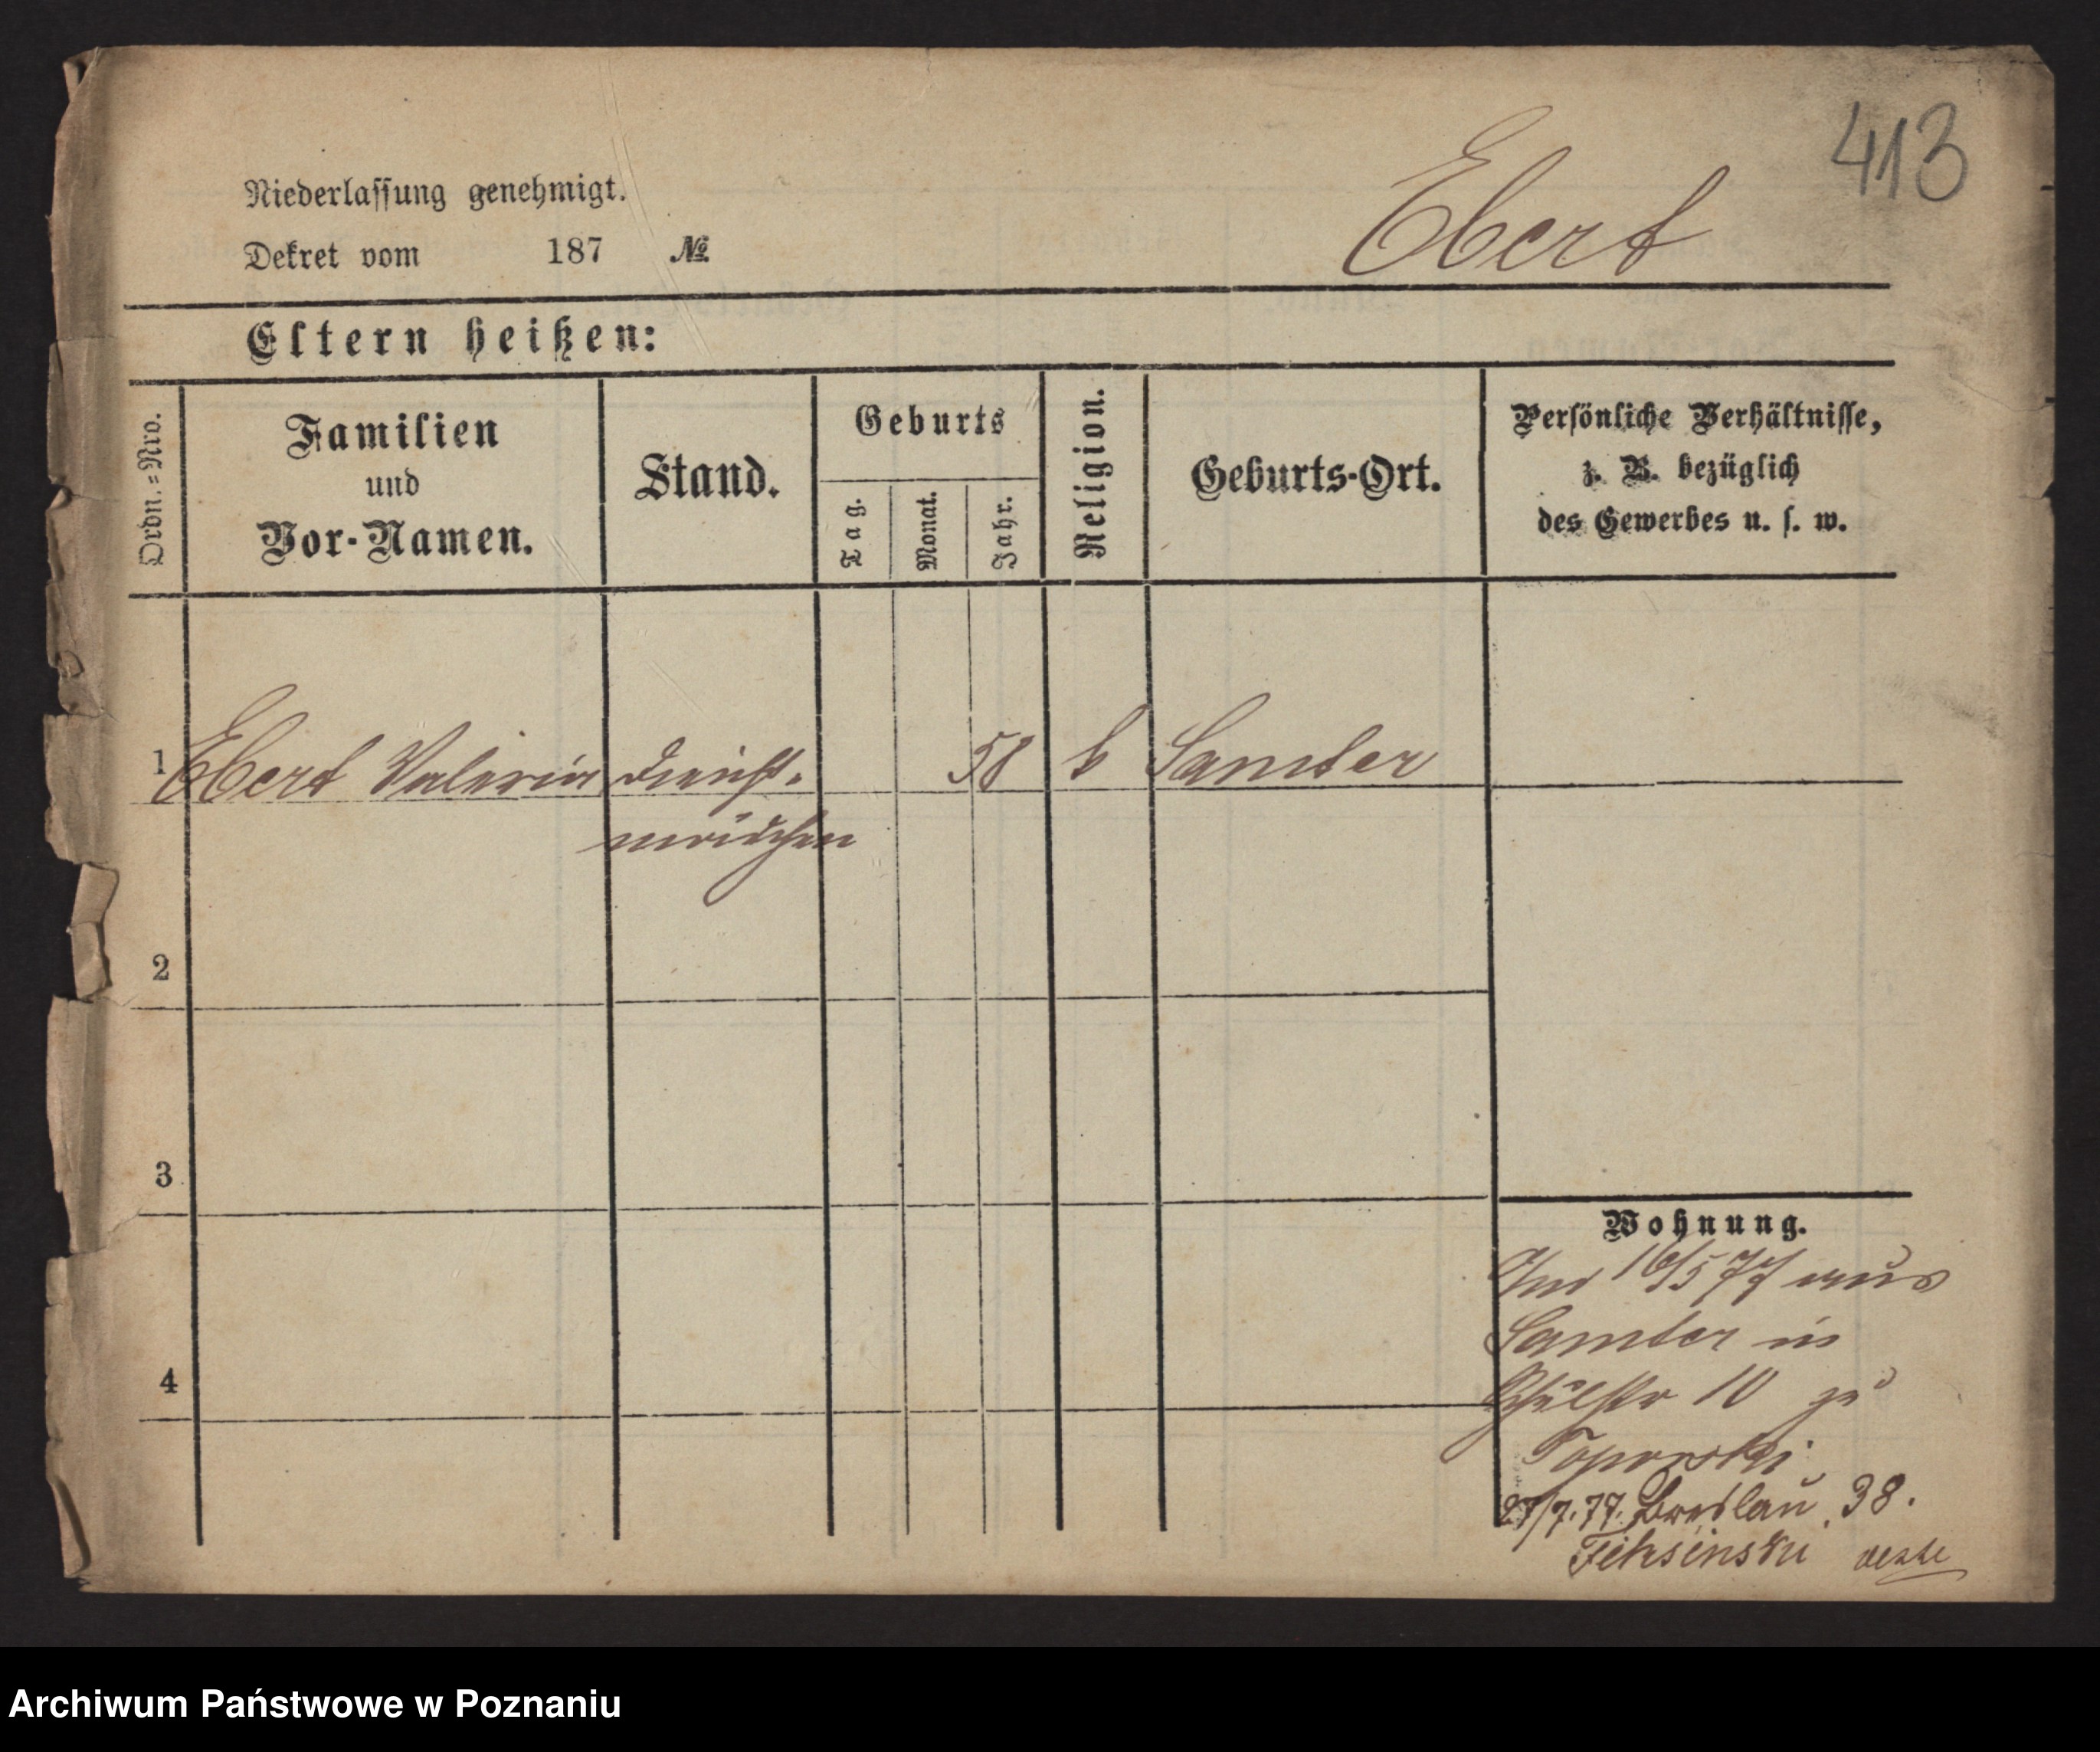 413
Ebert
Niederlassung genehmigt.
Dekret vom 187 №
Eltern heißen:
Ordn.=Nro.
Familien
und
Vor-Namen.
Stand.
Geburts
Tag.
Monat.
Jahr.
Religion.
Geburts-Ort.
Persönliche Verhältnisse,
z. B. bezüglich
des Gewerbes u. s. w.
1 Ebert Valeria Dienst- 58 k Samter
mädchen
2
3
4
Wohnung.
16/5 77 aus
Samter in
10 zu
Toporski
27/7.77. Breslau 38.
Archiwum Państwowe w Poznaniu